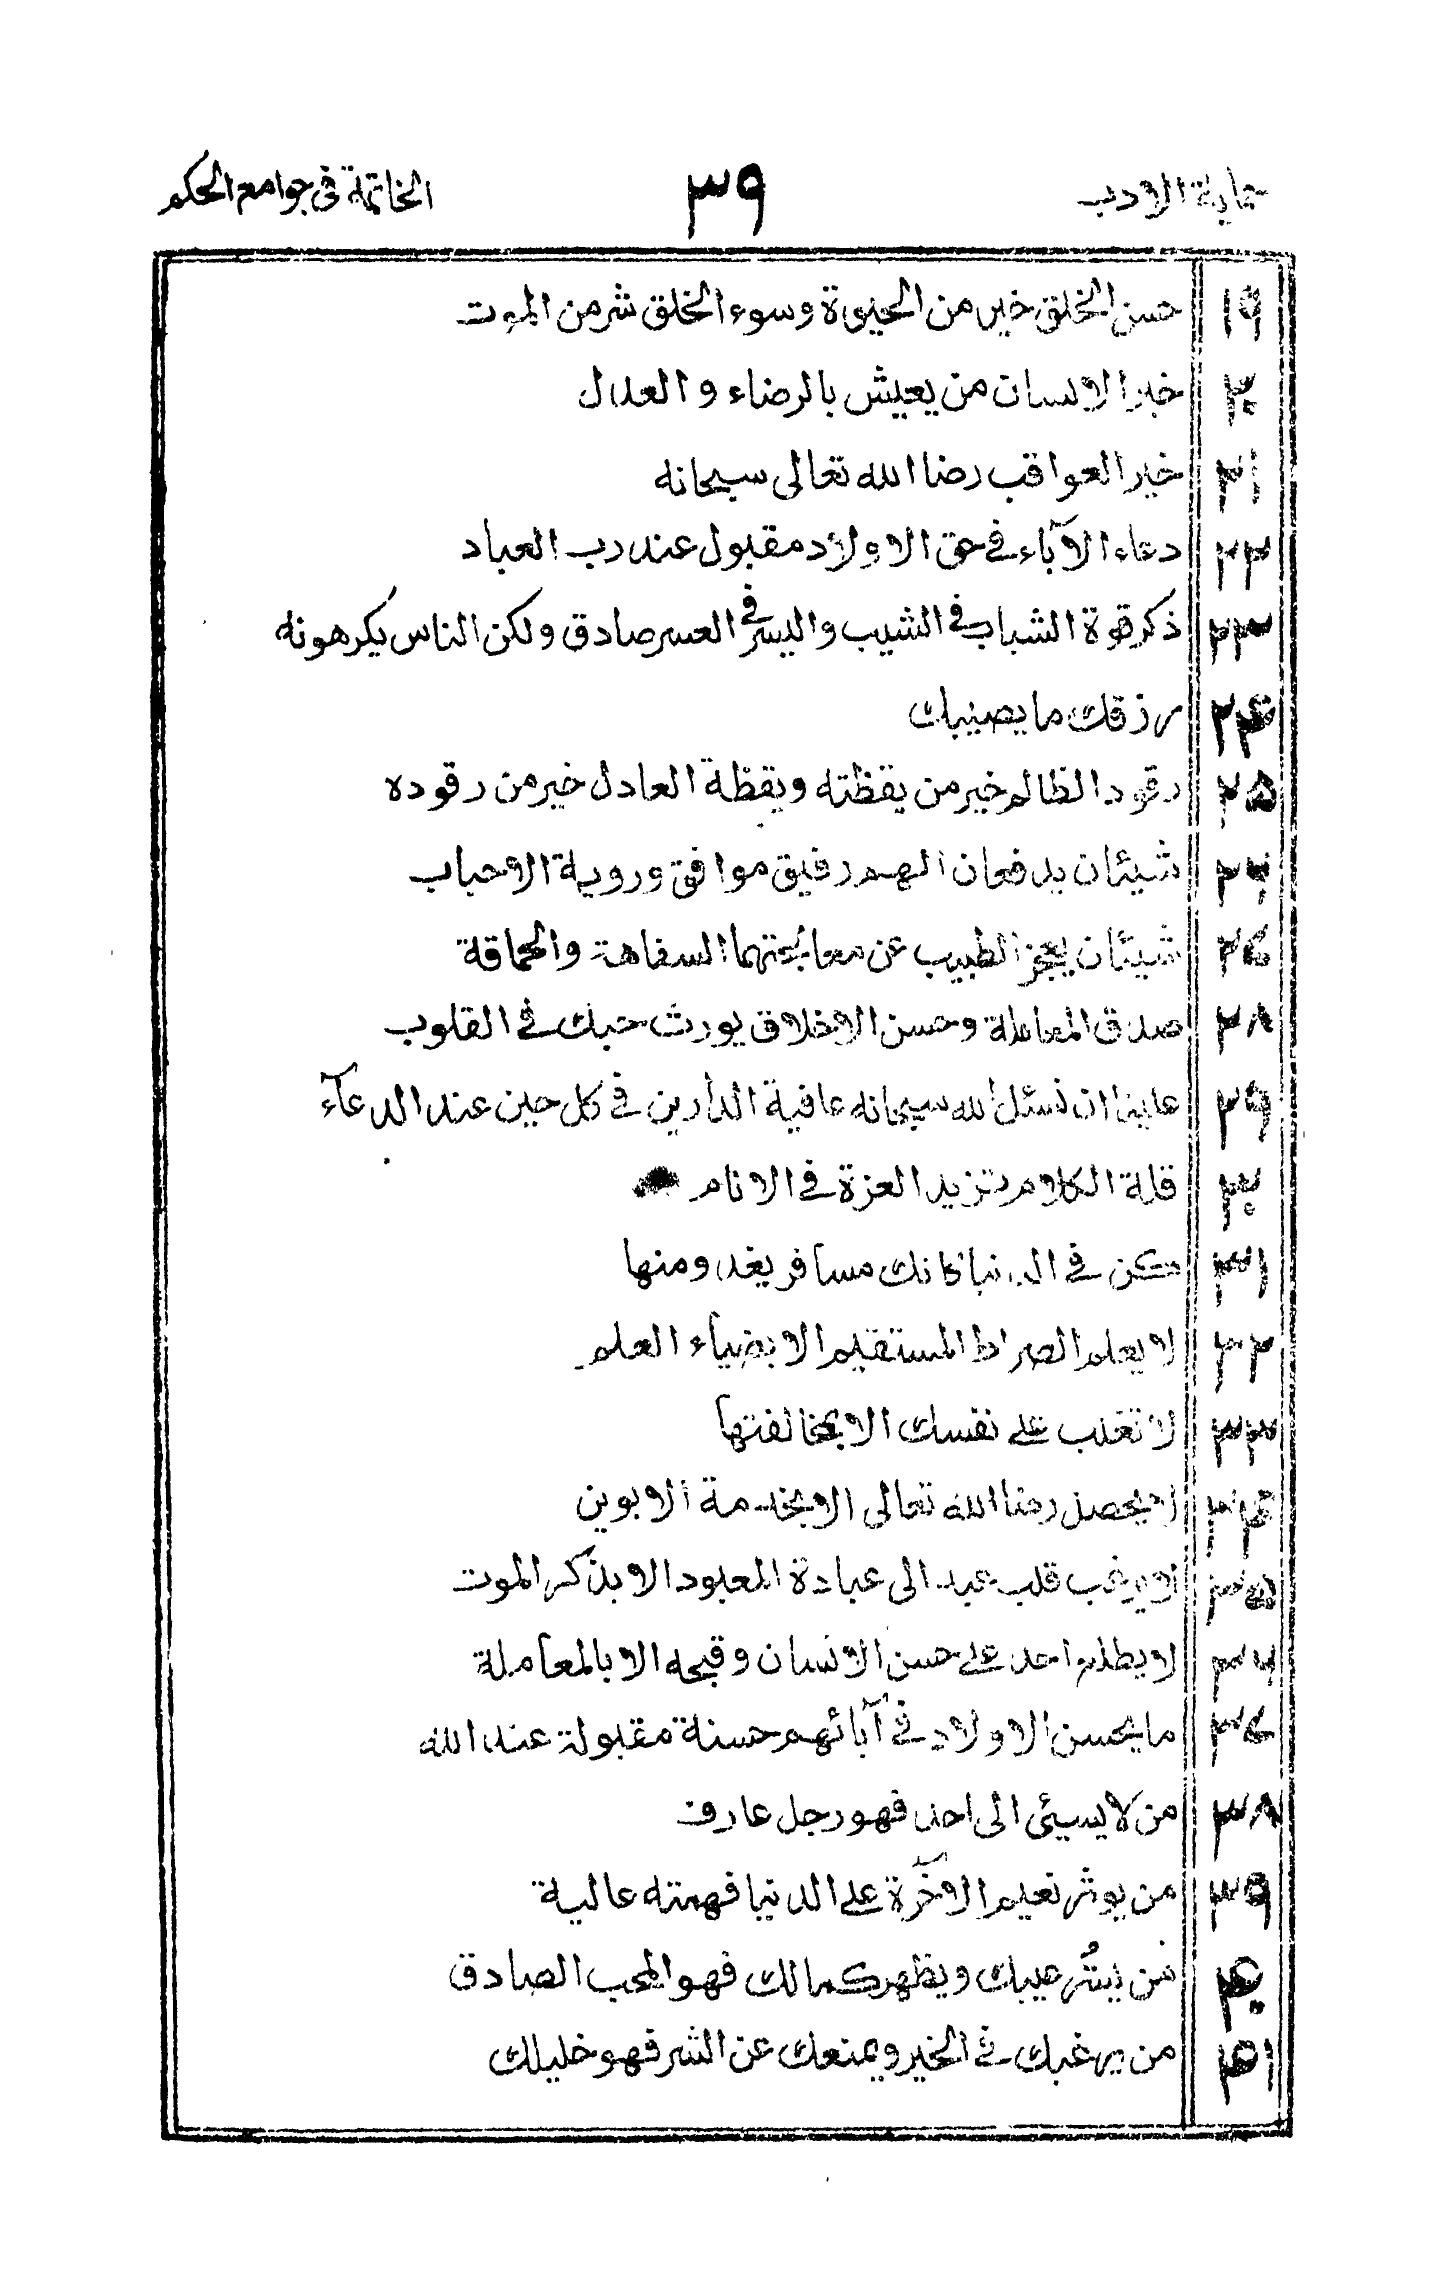 حماية الادب ۳۹ الخاتمة فى جوامع الحكم
۱۹ حسن الخلق خير من الحيوة وسوء الخلق شر من الموت
۲۰ خير الانسان من يعيش بالرضاء و العدل
۲۱ خير العواقب رضا الله تعالى سبحانه
۲۲ دعاء الآباء فى حق الاولاد مقبول عند رب العباد
۲۳ ذكر قوة الشباب فى الشيب واليسر فى العسر صادق ولكن الناس يكرهونه
۲۴ رزقك ما يصيبك
۲۵ رقود الظالم خير من يقظته ويقظة العادل خير من رقوده
۲۶ شيئان يدفعان الهم رفيق موافق وروية الاحباب
۲۷ شيئان يعجز الطبيب عن معالجتهما السفاهة والحماقة
۲۸ صدق المعاملة وحسن الاخلاق يورث حبك فى القلوب
۲۹ علينا ان نسئل الله سبحانه عافية الدارين فى كل حين عند الدعآء
۳۰ قلة الكلام تزيد العزة فى الانام
۳۱ كن فى الدنيا كانك مسافر يغدو منها
۳۲ لا يعلم الصراط المستقيم الا بضيآء العلم
۳۳ لا تغلب على نفسك الا بمخالفتها
۳۴ لا يحصل رضا الله تعالى الا بخدمة الابوين
۳۵ لا يرغب قلب عبد الى عبادة المعبود الا بذكر الموت
۳۶ لا يطلع احد على حسن الانسان وقبحه الا بالمعاملة
۳۷ ما يحسن الاولاد فى آبائهم حسنة مقبولة عند الله
۳۸ من لا يسيئى الى احد فهو رجل عارف
۳۹ من يوثر نعيم الآخرة على الدنيا فهمته عالية
۴۰ من يستُر عيبك ويظهر كمالك فهو المحب الصادق
۴۱ من يرغبك فى الخير ويمنعك عن الشر فهو خليلك